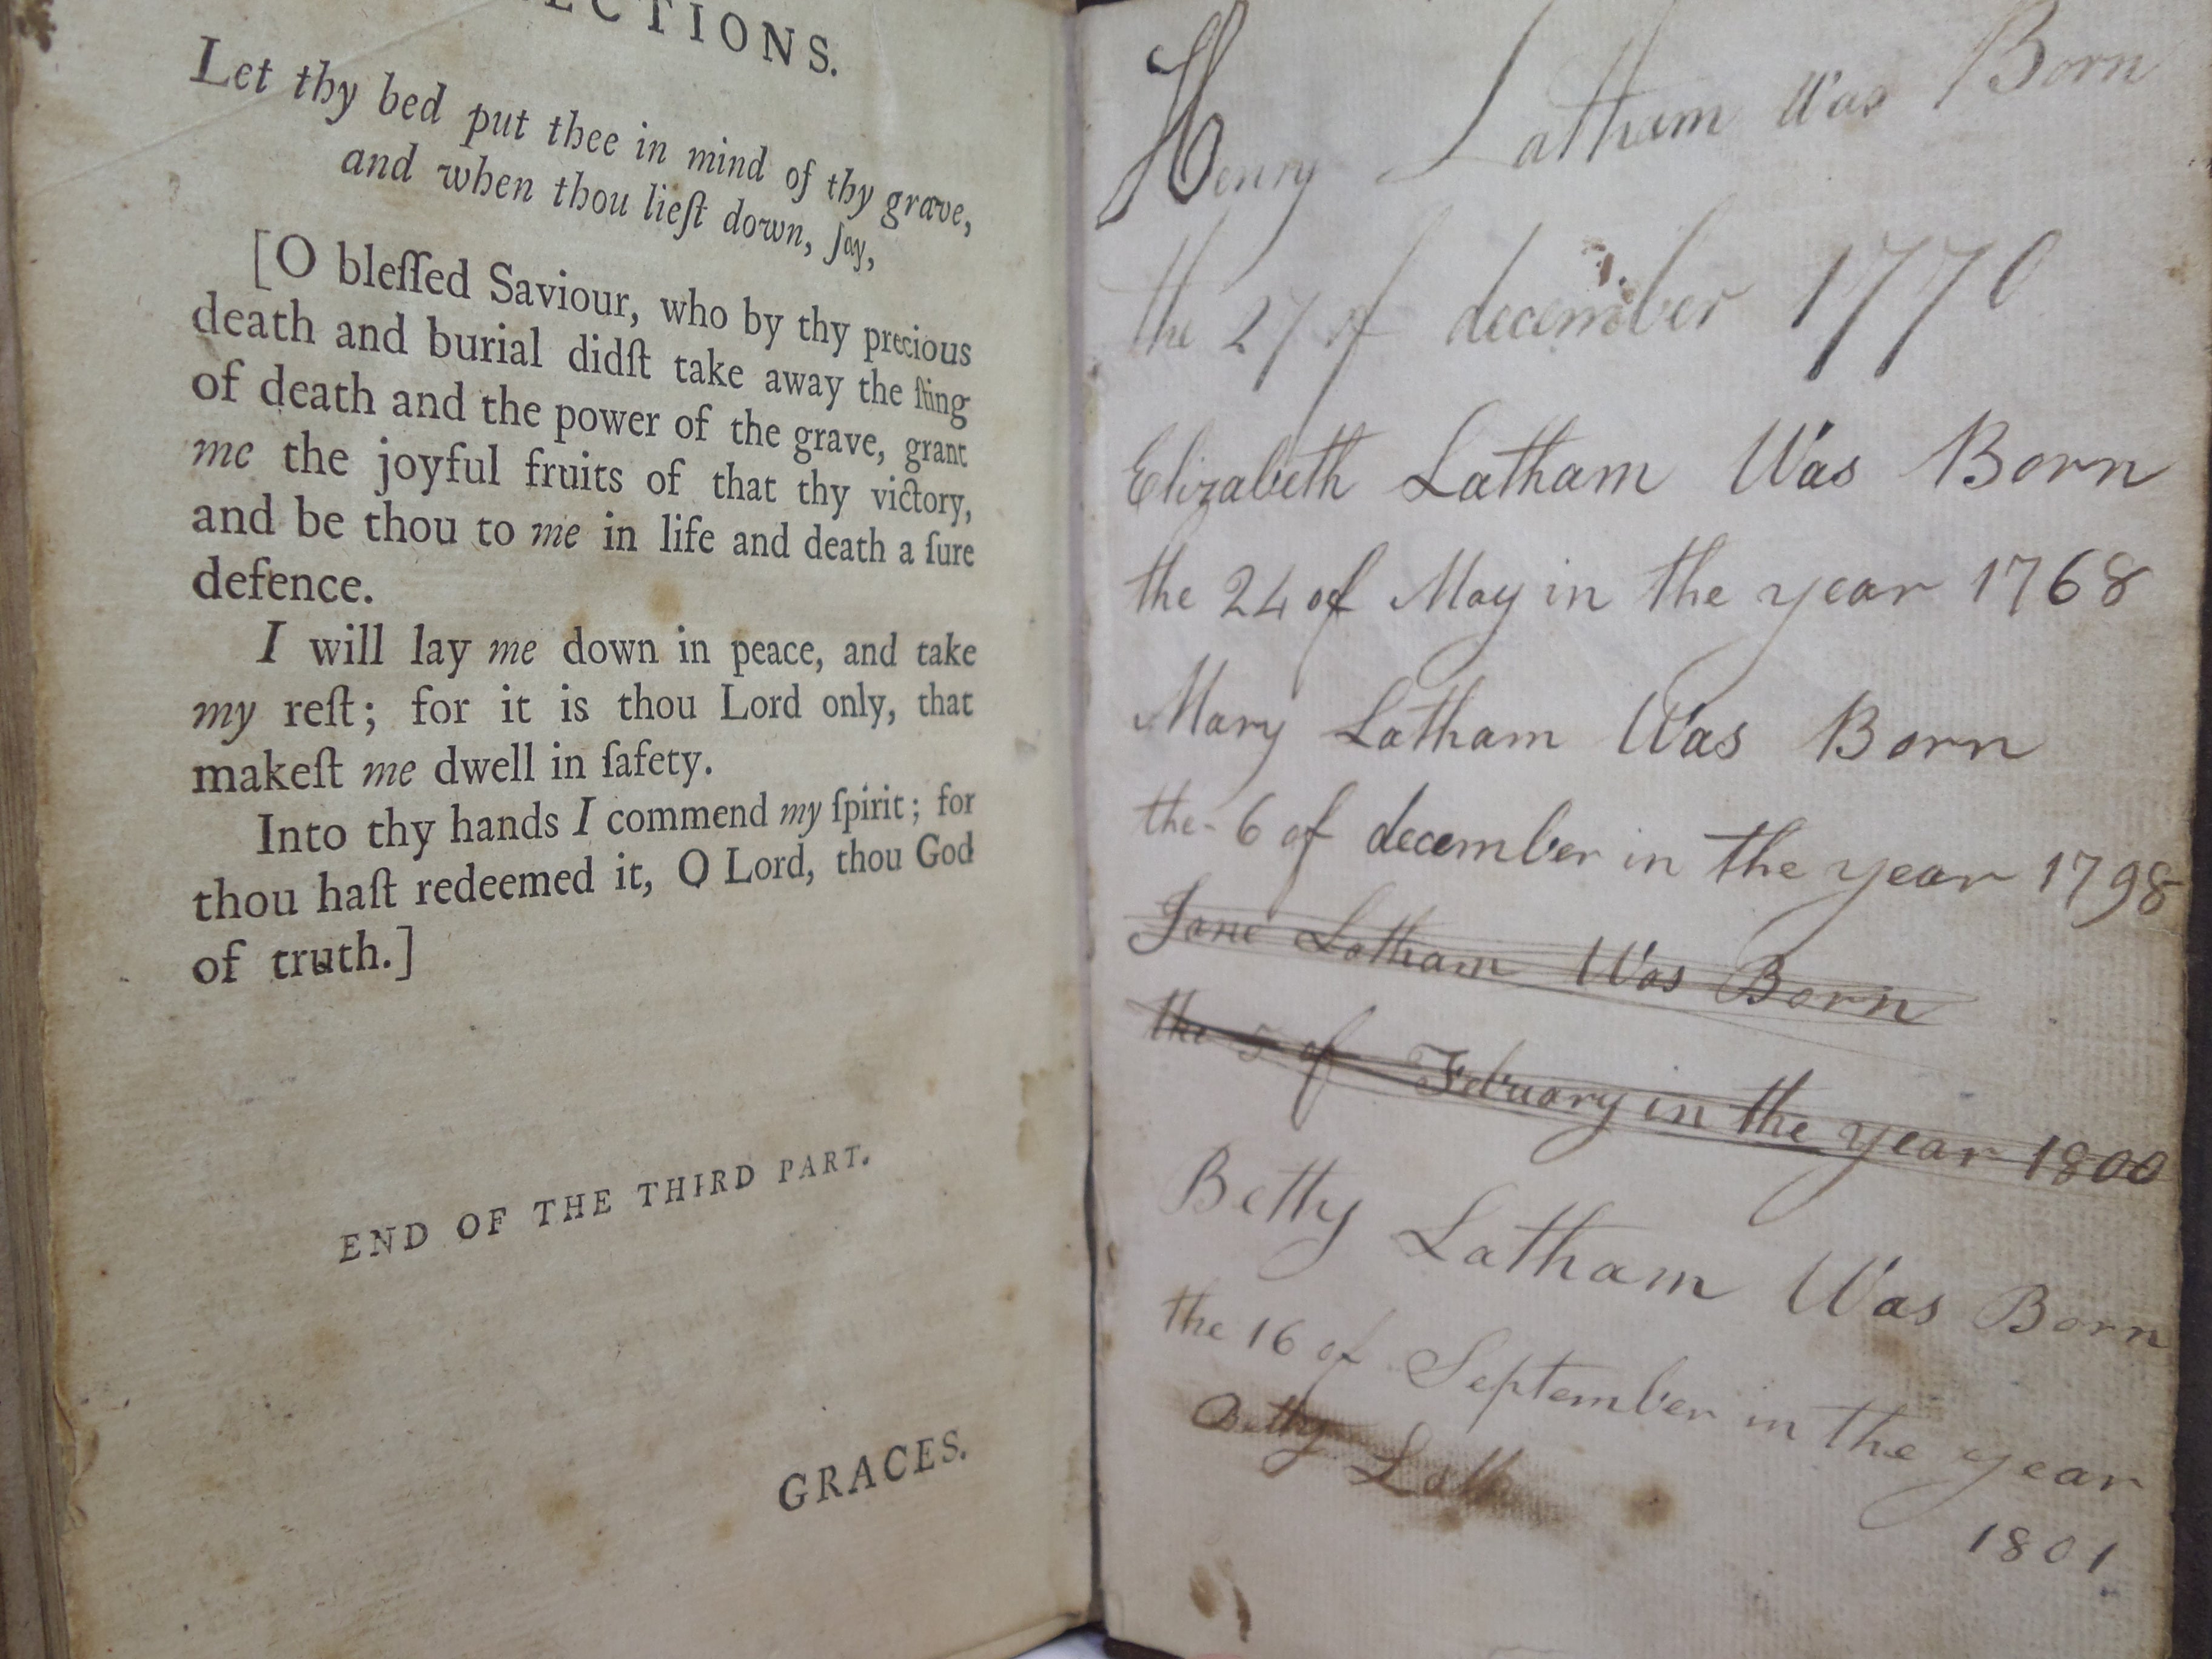 ECTIONS.
Let thy bed put thee in mind of thy grave,
and when thou lieſt down, ſay,
[O bleſſed Saviour, who by thy precious
death and burial didſt take away the ſting
of death and the power of the grave, grant
me the joyful fruits of that thy victory,
and be thou to me in life and death a ſure
defence.
I will lay me down in peace, and take
my reſt; for it is thou Lord only, that
makeſt me dwell in ſafety.
Into thy hands I commend my ſpirit; for
thou haſt redeemed it, O Lord, thou God
of truth.]
END OF THE THIRD PART.
GRACES.
Henry Latham Was Born
the 27 of december 1770
Elizabeth Latham Was Born
the 24 of May in the year 1768
Mary Latham Was Born
the 6 of december in the year 1798
Jane Latham Was Born
the 5 of February in the year 1800
Betty Latham Was Born
the 16 of September in the year
1801
Betty Lath